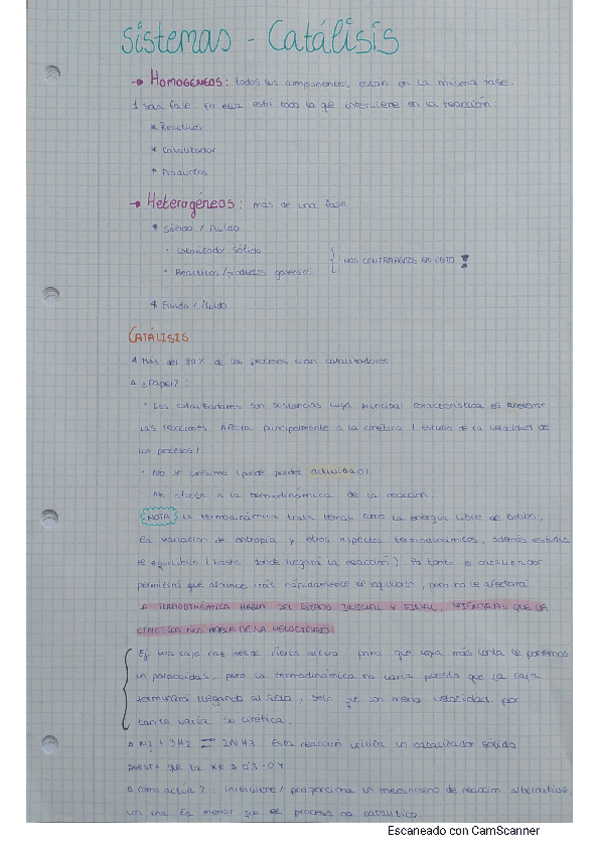 Sistemas - Catálisis
→ Homogéneos: todos sus componentes están en la misma fase.
1 sola fase. En ella está todo lo que interviene en la reacción:
* Reactivos
* Catalizador
* Productos
→ Heterogéneos: más de una fase
* Sólido / Fluido
· Catalizador sólido
· Reactivos/productos gaseosos.
NOS CENTRAREMOS EN ESTO !
* Fluido / Fluido
CATÁLISIS
Más del 90% de los procesos usan catalizadores
¿Papel? :
· Los catalizadores son sustancias cuya principal característica es acelerar
las reacciones. Afecta principalmente a la cinética (estudio de la velocidad de
los procesos)
· No se consume (puede perder actividad)
· No afecta a la termodinámica de la reacción.
NOTA La termodinámica trata temas como la energía libre de Gibbs,
la variación de entropía y otros aspectos termodinámicos, además estudia
el equilibrio (hasta dónde llegará la reacción). Por tanto el catalizador
permitirá que alcance más rápidamente el equilibrio, pero no le afectará
TERMODINÁMICA HABLA DEL ESTADO INICIAL Y FINAL, MIENTRAS QUE LA
CINÉTICA NOS HABLA DE LA VELOCIDAD.
Ej: una caja cae desde cierta altura, para que vaya más lenta le ponemos
un paracaídas, pero la termodinámica no varía puesto que la caja
terminará llegando al suelo, solo que con menor velocidad, por
tanto varía su cinética.
N2 + 3H2 ⇌ 2NH3 Esta reacción utiliza un catalizador sólido
puesto que la
Como actúa? : interviene/proporciona un mecanismo de reacción alternativo,
con una Ea menor que el proceso no catalítico.
Escaneado con CamScanner